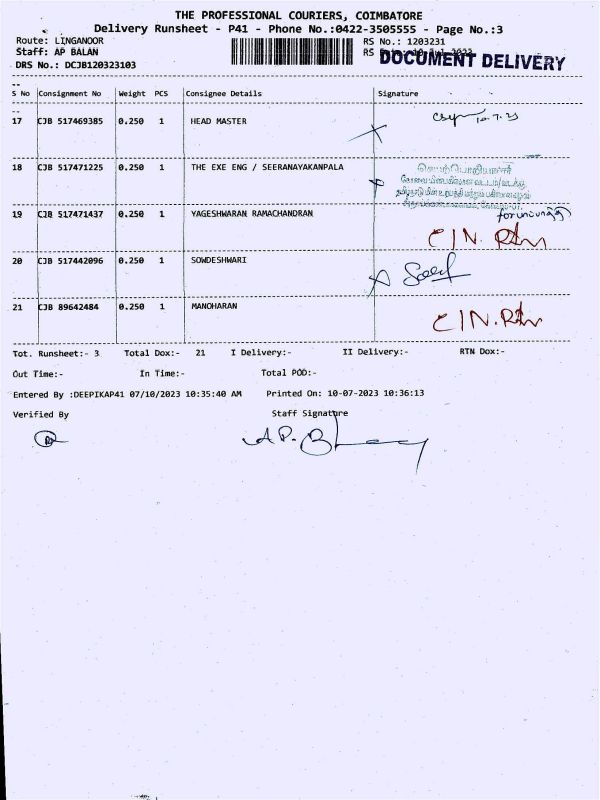 THE PROFESSIONAL COURIERS, COIMBATORE
Delivery Runsheet - P41 - Phone No.:0422-3505555 - Page No.:3
Route: LINGANOOR RS No.: 1203231
Staff: AP BALAN RS
DRS No.: DCJB120323103 DOCUMENT DELIVERY
S No Consignment No Weight PCS Consignee Details Signature
17 CJB 517469385 0.250 1 HEAD MASTER 10.7.23
18 CJB 517471225 0.250 1 THE EXE ENG / SEERANAYAKANPALA
19 CJB 517471437 0.250 1 YAGESHWARAN RAMACHANDRAN
C/N. Rtn
20 CJB 517442096 0.250 1 SOWDESHWARI
21 CJB 89642484 0.250 1 MANOHARAN
C/N. Rtn
Tot. Runsheet:- 3 Total Dox:- 21 I Delivery:- II Delivery:- RTN Dox:-
Out Time:- In Time:- Total POD:-
Entered By :DEEPIKAP41 07/10/2023 10:35:40 AM Printed On: 10-07-2023 10:36:13
Verified By Staff Signature